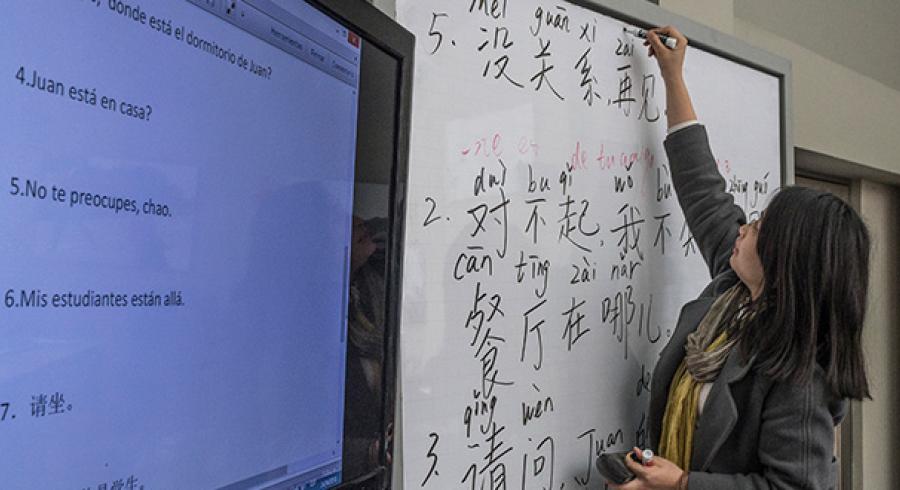 donde está el dormitorio de Juan?
4.Juan está en casa?
5.No te preocupes, chao.
6.Mis estudiantes están allá.
7. 请坐。
学生。
méi guān xi zài
5. 没关系,再见
duì bu qǐ wǒ bù
2. 对不起,我不
cān tīng zài nǎr
餐厅在哪儿。
qǐng wèn
3. 请问, Juan